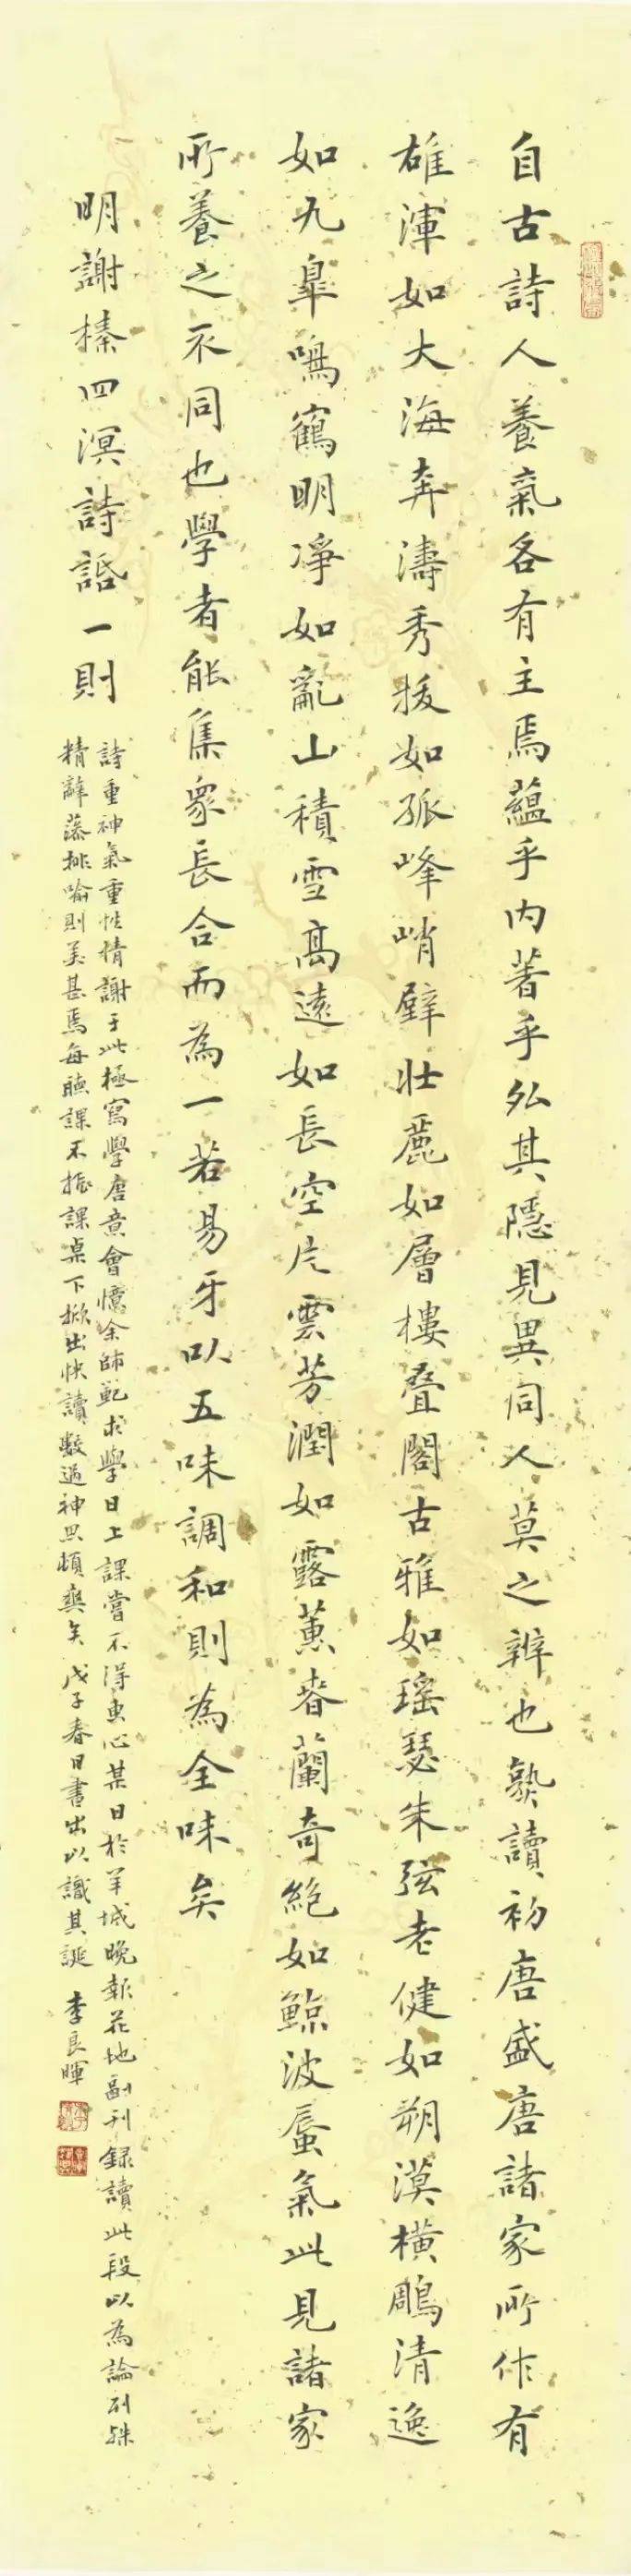 自古詩人養氣各有主焉蘊乎内著乎外其隱見異同人莫之辨也孰讀初唐盛唐諸家所作有
雄渾如大海奔濤秀拔如孤峰峭壁壯麗如層樓疊閣古雅如瑤瑟朱弦老健如朔漠橫鵰清逸
如九皋鳴鶴明凈如亂山積雪高遠如長空片雲芳潤如露蕙春蘭奇絕如鯨波蜃氣此見諸家
所養之不同也學者能集眾長合而為一若易牙以五味調和則為全味矣
明謝榛四溟詩話一則
詩重神氣重性情謝于此極寫學唐意會憶余師範求學日上課嘗不得專心某日於羊城晚報花地副刊錄讀此段以為論列殊
精辭藻排喻則美甚焉每聽課不振課桌下掀出快讀數過神思頓爽矣戊子春日書出以識其誕 李良暉